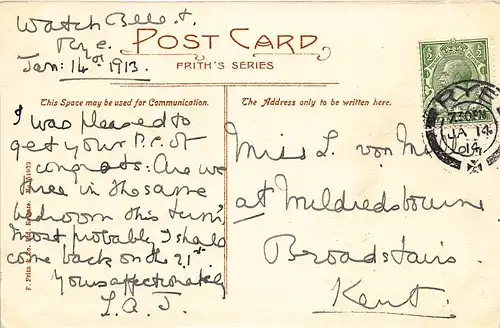 Watch Bell St.
Rye.
Jan: 14th 1913.
POST CARD
FRITH'S SERIES
This Space may be used for Communication.
The Address only to be written here.
I was pleased to
get your P.C. &
congrats: Are we
three in the same
bedroom this turn?
Most probably I shall
come back on the 21st
Yours affectionately
L.A.J.
Miss L. von
at Mildredsbourne
Broadstairs.
Kent.
RYE
7.30PM
JA 14
F. Frith & Co. Ltd. Reigate.